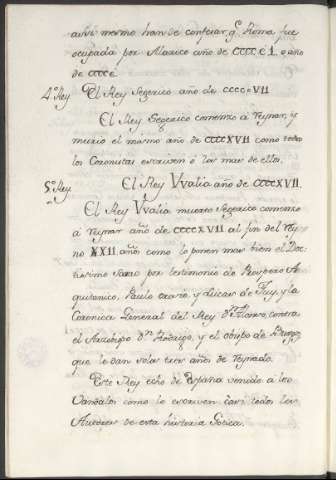 assi mesmo han de confesar q̃. Roma fue
ocupada por Alarico año de CCCCC1. o año
de CCCCC
4.º Rey El Rey Segerico año de CCCCXVII
El Rey Segerico comenzo a reynar, y
murio el mismo año de CCCCXVII como todos
los Coronistas escriven ó los mas de ellos.
5.º Rey El Rey VValia año de CCCCXVII.
El Rey VValia muerto Segerico comenzo
a reynar año de CCCCXVII al fin del
no XXII años como lo ponen mas bien el Doc
tissimo Sario por testimonio de Prospero A
quitanico, Paulo orosio, y Lucas de Tuy, y la
Coronica General del Rey Dn. Alonso, contra
el Arzobispo Dn. Rodrigo, y el obispo de Burgos,
que le dan solos tres años de reynado.
Este Rey echo de España venido a los
Vandalos como lo escriven casi todos los
Auctores de esta historia Gotica.